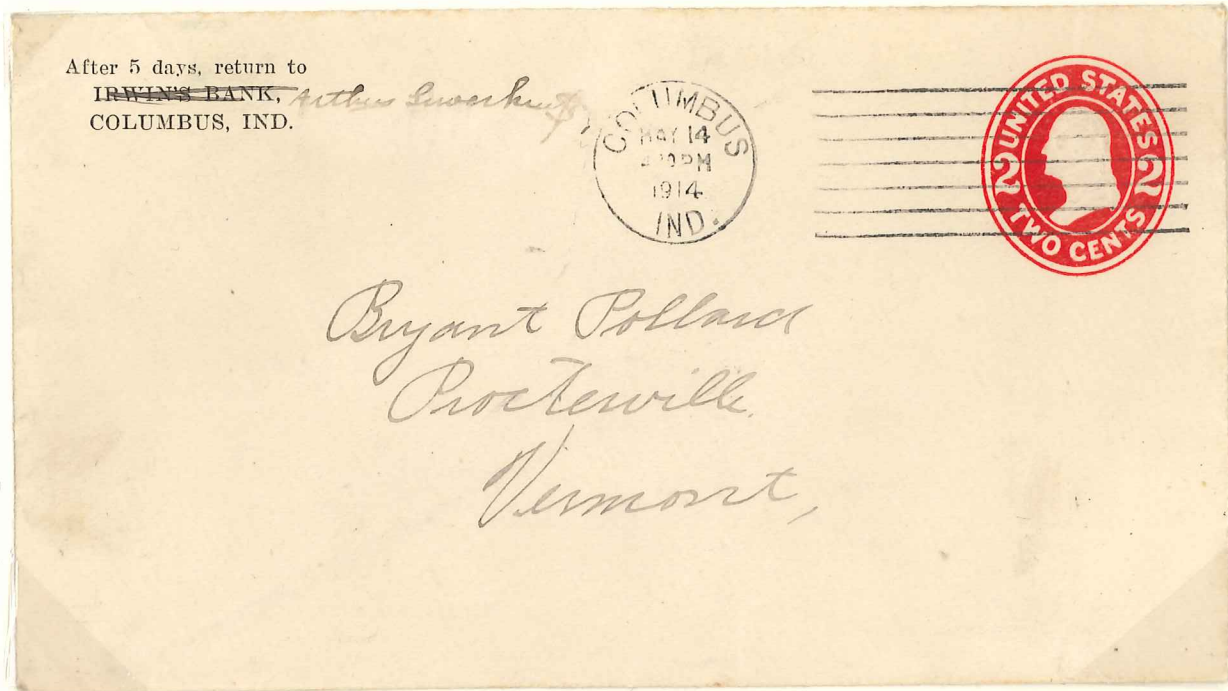 After 5 days, return to
IRWIN'S BANK, Arthur
COLUMBUS, IND.
COLUMBUS
MAY 14
PM
1914
IND.
UNITED STATES
2 2
TWO CENTS
Bryant Pollard
Procterville
Vermont,